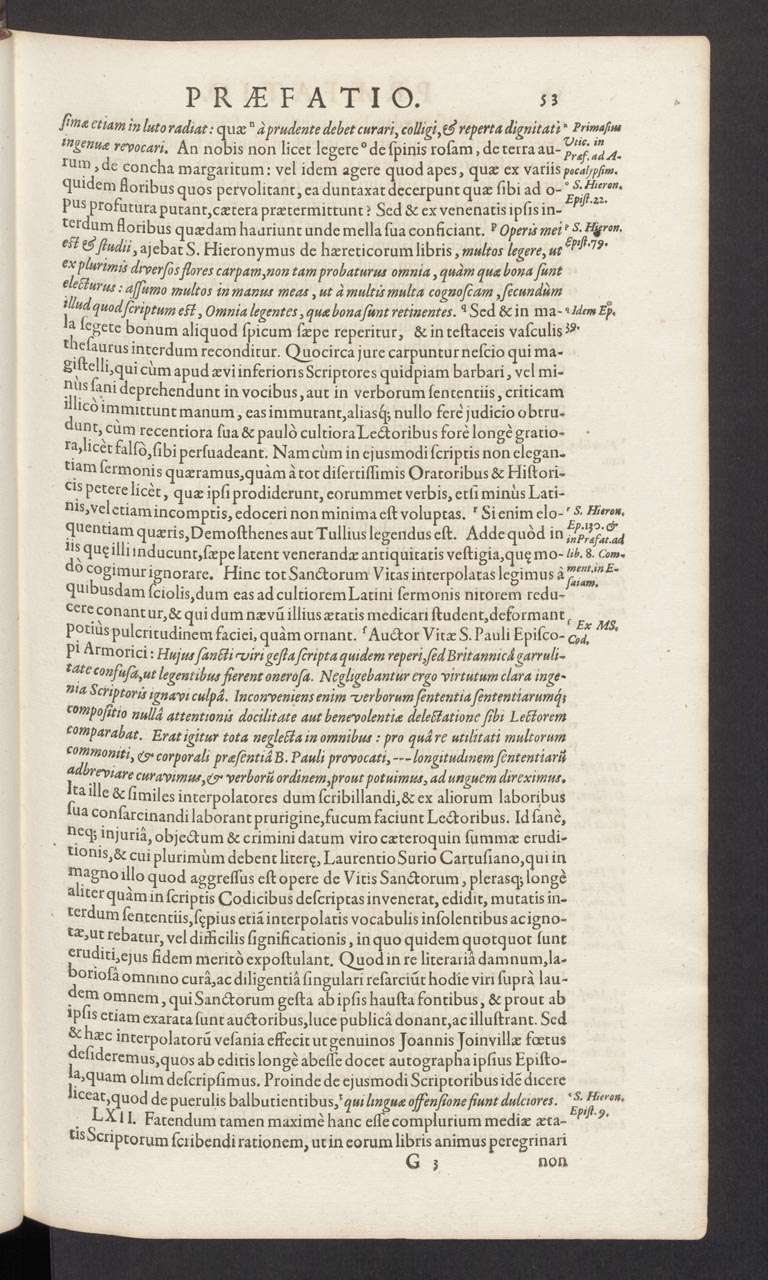 PRÆFATIO. 53
ſimæ etiam in luto radiat: quæ ⁿ à prudente debet curari, colligi, & reperta dignitati
ingenuæ revocari. An nobis non licet legere ᵒ de ſpinis roſam, de terra au-
rum, de concha margaritum: vel idem agere quod apes, quæ ex variis
quidem floribus quos pervolitant, ea duntaxat decerpunt quæ ſibi ad o-
pus profutura putant, cætera prætermittunt? Sed & ex venenatis ipſis in-
terdum floribus quædam hauriunt unde mella ſua conficiant. ᵖ Operis mei
eſt & ſtudii, ajebat S. Hieronymus de hæreticorum libris, multos legere, ut
ex plurimis diverſos flores carpam, non tam probaturus omnia, quàm quæ bona ſunt
electurus: aſſumo multos in manus meas, ut à multis multa cognoſcam, ſecundùm
illud quod ſcriptum eſt, Omnia legentes, quæ bona ſunt retinentes. q Sed & in ma-
la ſegete bonum aliquod ſpicum ſæpe reperitur, & in teſtaceis vaſculis
theſaurus interdum reconditur. Quocirca jure carpuntur neſcio qui ma-
giſtelli, qui cùm apud ævi inferioris Scriptores quidpiam barbari, vel mi-
nùs ſani deprehendunt in vocibus, aut in verborum ſententiis, criticam
illicò immittunt manum, eas immutant, aliasq́; nullo ferè judicio obtru-
dunt, cùm recentiora ſua & paulò cultiora Lectoribus forè longè gratio-
ra, licèt falſò, ſibi perſuadeant. Nam cùm in ejusmodi ſcriptis non elegan-
tiam ſermonis quæramus, quàm à tot diſertiſſimis Oratoribus & Hiſtori-
cis petere licèt, quæ ipſi prodiderunt, eorummet verbis, etſi minùs Lati-
nis, vel etiam incomptis, edoceri non minima eſt voluptas. ʳ Si enim elo-
quentiam quæris, Demoſthenes aut Tullius legendus eſt. Adde quòd in
iis quę illi inducunt, ſæpe latent venerandæ antiquitatis veſtigia, quę mo-
dò cogimur ignorare. Hinc tot Sanctorum Vitas interpolatas legimus à
quibusdam ſciolis, dum eas ad cultiorem Latini ſermonis nitorem redu-
cere conantur, & qui dum nævũ illius ætatis medicari ſtudent, deformant
potiùs pulcritudinem faciei, quàm ornant. ſ Auctor Vitæ S. Pauli Epiſco-
pi Armorici: Hujus ſancti viri geſta ſcripta quidem reperi, ſed Britannicâ garruli-
tate confuſa, ut legentibus fierent oneroſa. Negligebantur ergo virtutum clara inge-
nia Scriptoris ignavi culpâ. Inconveniens enim verborum ſententia ſententiarumq́;
compoſitio nullâ attentionis docilitate aut benevolentiæ delectatione ſibi Lectorem
comparabat. Erat igitur tota neglecta in omnibus: pro quâ re utilitati multorum
commoniti, & corporali præſentiâ B. Pauli provocati, --- longitudinem ſententiarũ
adbreviare curavimus, & verborũ ordinem, prout potuimus, ad unguem direximus.
Ita ille & ſimiles interpolatores dum ſcribillandi, & ex aliorum laboribus
ſua conſarcinandi laborant prurigine, fucum faciunt Lectoribus. Id ſanè,
neq; injuriâ, objectum & crimini datum viro cæteroquin ſummæ erudi-
tionis, & cui plurimùm debent literę, Laurentio Surio Cartuſiano, qui in
magno illo quod aggreſſus eſt opere de Vitis Sanctorum, plerasq; longè
aliter quàm in ſcriptis Codicibus deſcriptas invenerat, edidit, mutatis in-
terdum ſententiis, ſępius etiã interpolatis vocabulis inſolentibus ac igno-
tæ, ut rebatur, vel difficilis ſignificationis, in quo quidem quotquot ſunt
eruditi, ejus fidem meritò expoſtulant. Quod in re literariâ damnum, la-
borioſâ omnino curâ, ac diligentiâ ſingulari reſarciũt hodie viri ſuprà lau-
dem omnem, qui Sanctorum geſta ab ipſis hauſta fontibus, & prout ab
ipſis etiam exarata ſunt auctoribus, luce publicâ donant, ac illuſtrant. Sed
& hæc interpolatorũ veſania effecit ut genuinos Joannis Joinvillæ fœtus
deſideremus, quos ab editis longè abeſſe docet autographa ipſius Epiſto-
la, quam olim deſcripſimus. Proinde de ejusmodi Scriptoribus idẽ dicere
liceat, quod de puerulis balbutientibus, ᵗ qui linguæ offenſione fiunt dulciores.
LXII. Fatendum tamen maximè hanc eſſe complurium mediæ æta-
tis Scriptorum ſcribendi rationem, ut in eorum libris animus peregrinari
G 3 non
ⁿ Primaſius
Vtic. in
Præf. ad A-
pocalypſim.
ᵒ S. Hieron.
Epiſt. 22.
ᵖ S. Hieron.
Epiſt. 79.
q Idem Ep.
39.
ʳ S. Hieron.
Ep. 130. &
in Præfat. ad
lib. 8. Com-
ment. in E-
ſaiam.
ſ Ex MS.
Cod.
ᵗ S. Hieron.
Epiſt. 9.